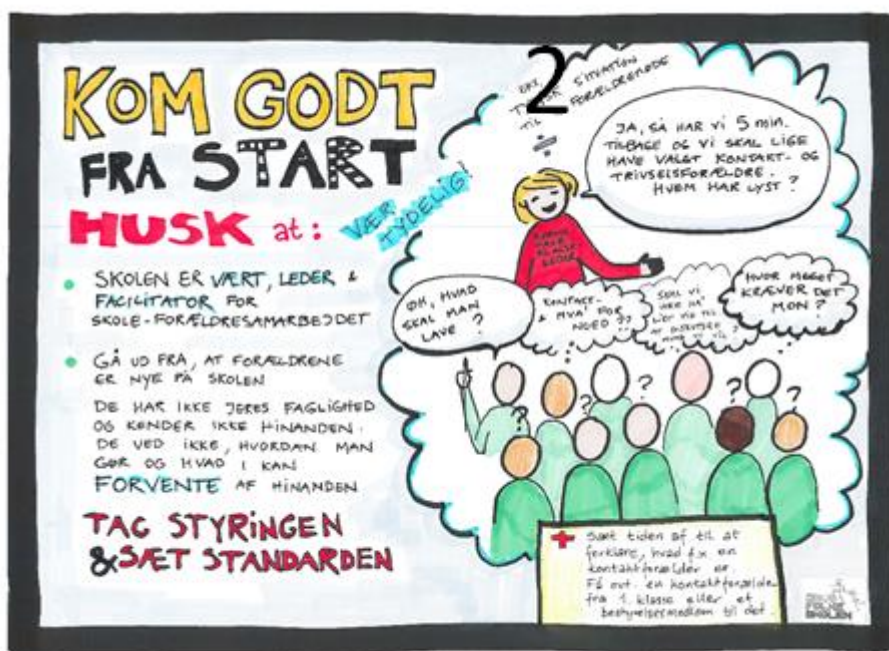 KOM GODT
FRA START
HUSK at:
VÆR
TYDELIG!
• SKOLEN ER VÆRT, LEDER &
FACILITATOR FOR
SKOLE-FORÆLDRESAMARBEJDET
• GÅ UD FRA, AT FORÆLDRENE
ER NYE PÅ SKOLEN
DE HAR IKKE JERES FAGLIGHED
OG KENDER IKKE HINANDEN.
DE VED IKKE, HVORDAN MAN
GØR OG HVAD I KAN
FORVENTE AF HINANDEN
TAG STYRINGEN
& SÆT STANDARDEN
2
SITUATION
TIL FORÆLDREMØDE
JA, SÅ HAR VI 5 min.
TILBAGE OG VI SKAL LIGE
HAVE VALGT KONTAKT- OG
TRIVSELSFORÆLDRE.
HVEM HAR LYST?
LEDER
ØH, HVAD
SKAL MAN
LAVE?
KONTAKT-
& HVA' FOR
NOED??
SKAL VI
HVOR MEGET
KRÆVER DET
MON?
? ? ? ? ? ?
+ Sæt tiden af til at
forklare, hvad f.x. en
kontaktforælder er.
Få evt. en kontaktforælder
fra 1. klasse eller et
bestyrelsesmedlem til det.
FOLKE
SKOLEN